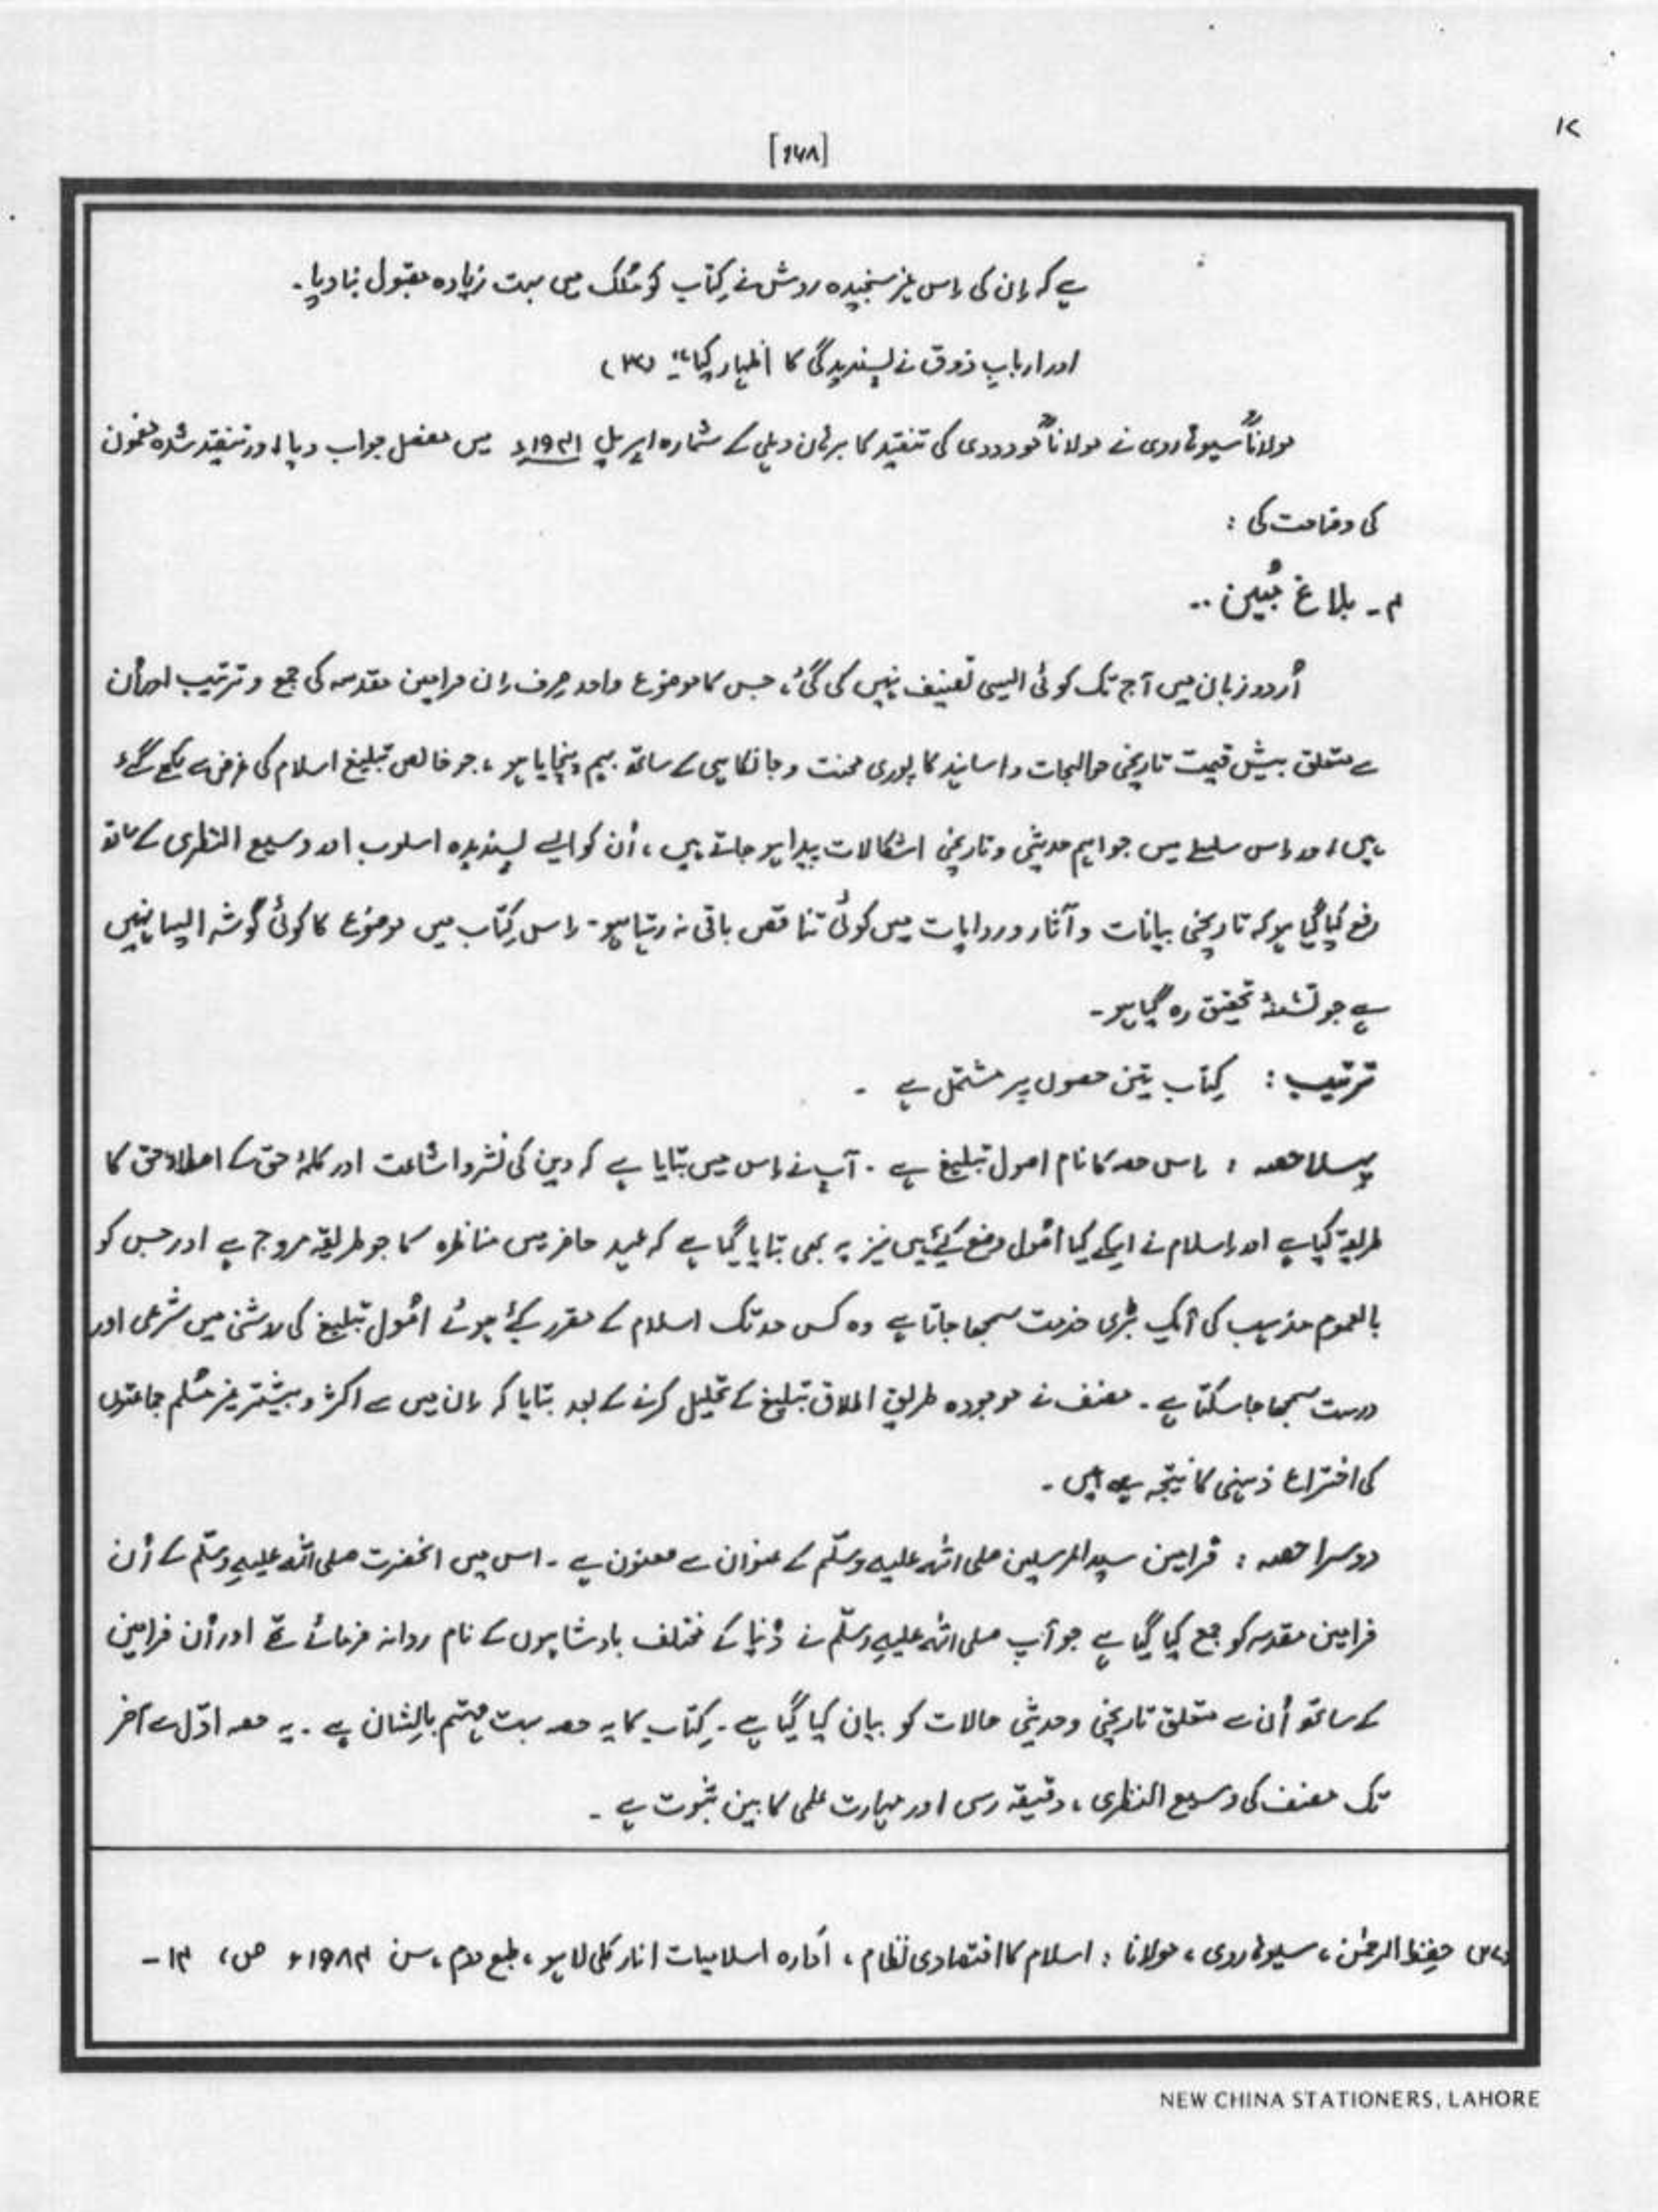 ۱۷
[۱۷۸]
ہے کہ اِن کی اِس غیر سنجیدہ روش نے کتاب کو مُلک میں بہت زیادہ مقبول بنا دیا۔
اور اربابِ ذوق نے پسندیدگی کا اظہار کیا"۔ (۳۷)
مولاناؒ سیوہاروی نے مولاناؒ مودودی کی تنقید کا برہان دہلی کے شمارہ اپریل ۱۹۴۱ء میں مفصل جواب دیا اور تنقید شدہ مضمون
کی وضاحت کی :
۴۔ بلاغ مُبین ..
اُردو زبان میں آج تک کوئی ایسی تصنیف نہیں کی گئی، جس کا موضوع واحد صرف اِن فرامین مقدسہ کی جمع و ترتیب اور اُن
سے متعلق بیش قیمت تاریخی حوالہجات و اسانید کا پوری محنت و جانکاہی کے ساتھ بہم پہنچایا ہو، جو خالص تبلیغ اسلام کی غرض سے لکھے گئے
ہیں اور اِس سلسلے میں جو اہم حدیثی و تاریخی اشکالات پیدا ہو جاتے ہیں، اُن کو ایسے پسندیدہ اسلوب اور وسیع النظری کے ساتھ
رفع کیا گیا ہو کہ تاریخی بیانات و آثار و روایات میں کوئی تناقص باقی نہ رہتا ہو۔ اِس کتاب میں موضوع کا کوئی گوشہ ایسا نہیں
ہے جو تشنۂ تحقیق رہ گیا ہو۔
ترتیب : کتاب تین حصوں پر مشتمل ہے ۔
پہلا حصہ : اِس حصہ کا نام اصول تبلیغ ہے ۔ آپ نے اِس میں بتایا ہے کہ دین کی نشر و اشاعت اور کلمۂ حق کے اعلاءِ حق کا
طریقہ کیا ہے اور اِسلام نے اسکے کیا اصُول وضع کیئے ہیں نیز یہ بھی بتایا گیا ہے کہ عہد حاضر میں مناظرہ کا جو طریقہ مروج ہے اور جس کو
بالعموم مذہب کی ایک بڑی خدمت سمجھا جاتا ہے وہ کس حد تک اسلام کے مقرر کیئے ہوئے اصُول تبلیغ کی روشنی میں شرعی اور
درست سمجھا جا سکتا ہے ۔ مصنف نے موجودہ طریق تبلیغ کے تحلیل کرنے کے بعد بتایا کہ اِن میں سے اکثر و بیشتر غیر مُسلم جماعتوں
کی اختراع ذہنی کا نتیجہ ہیں ۔
دوسرا حصہ : فرامین سید المرسلین صلی اللہ علیہ وسلّم کے عنوان سے معنون ہے ۔ اس میں انحضرت صلی اللہ علیہ وسلّم کے اُن
فرامین مقدسہ کو جمع کیا گیا ہے جو آپ صلی اللہ علیہ وسلّم نے دُنیا کے مختلف بادشاہوں کے نام روانہ فرمائے تھے اور اُن فرامین
کے ساتھ اُن سے متعلق تاریخی و حدیثی حالات کو بیان کیا گیا ہے ۔ کتاب کا یہ حصہ بہت مہتم بالِشان ہے ۔ یہ حصہ اوّل سے آخر
تک مصنف کی وسیع النظری ، دقیقہ رسی اور مہارت علمی کا بین ثبوت ہے ۔
حفیظ الرحمٰن ، سیوہاروی ، مولانا : اسلام کا اقتصادی نظام ، ادارہ اسلامیات انار کلی لاہور ، طبع دوم ، سن ۱۹۸۴ء ص ، ۱۴ ۔
NEW CHINA STATIONERS, LAHORE